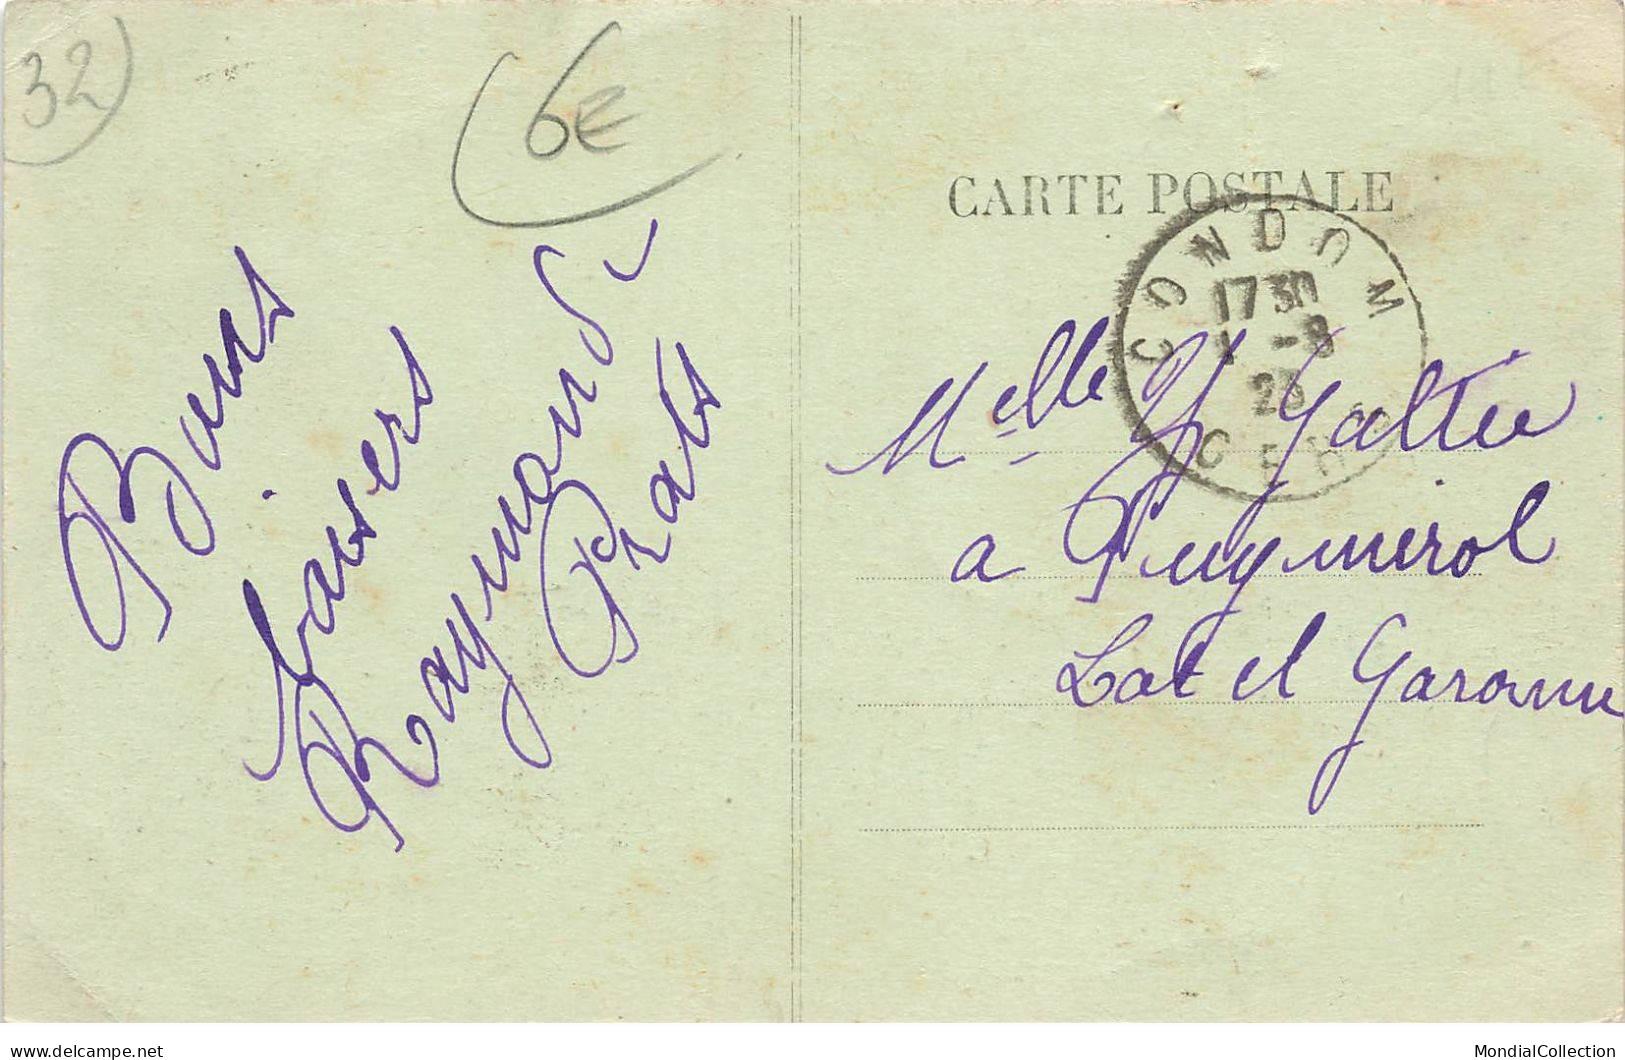 32
6€
Bons
baisers
Raymonde
Prats
CARTE POSTALE
CONDOM
17 30
-8
23
GERS
Melle Y Galtié
a Puymirol
Lot et Garonne
delcampe.net
MondialCollection